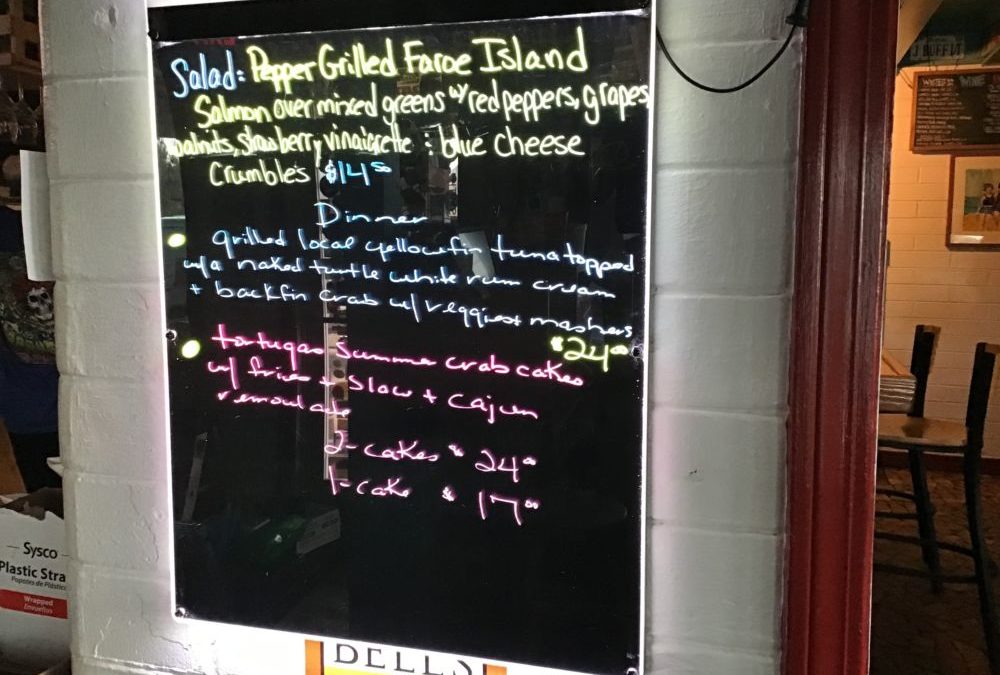 Salad: Pepper Grilled Faroe Island
Salmon over mixed greens w/ red peppers, grapes,
walnuts, strawberry vinaigrette : blue cheese
Crumbles $14.50
Dinner
grilled local yellowfin tuna topped
w/a naked turtle white rum cream
+ backfin crab w/ veggies + mashers
$24.00
tortugas summer crab cakes
w/ fries + slaw + cajun
remoulade
2-cakes $ 24.00
1-cake $ 17.00
Sysco
Plastic Stra
Popotes de Plástic
Wrapped
Envueltos
BELL'S
BUFFET